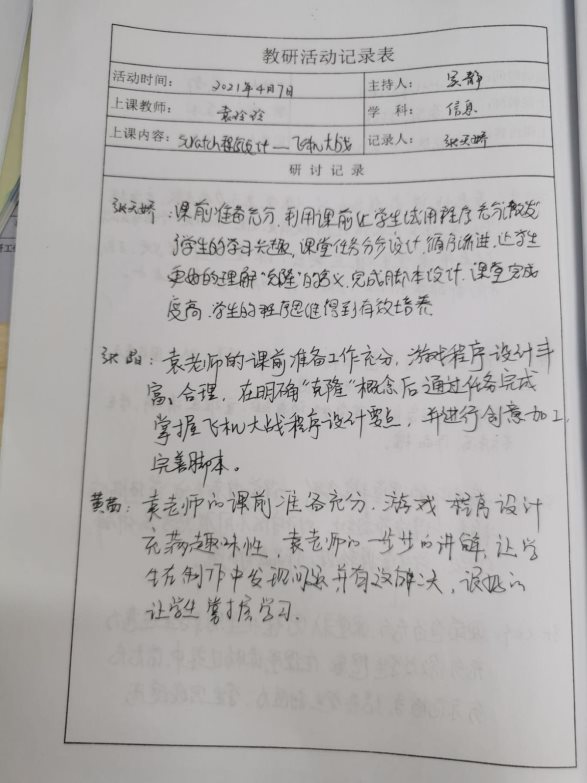 教研活动记录表
活动时间： 2021年4月7日 主持人： 吴静
上课教师： 袁玲玲 学 科： 信息
上课内容： Scratch程序设计——飞机大战 记录人： 张天娇
研 讨 记 录
张天娇：课前准备充分，利用课前让学生试用程序充分激发
学生的学习兴趣，课堂任务分步设计，循序渐进，让学生
更好的理解“克隆”的含义，完成脚本设计，课堂完成
度高，学生的程序思维得到有效培养
张晶：袁老师的课前准备工作充分，游戏程序设计丰
富、合理，在明确“克隆”概念后通过任务完成
掌握飞机大战程序设计要点，并进行创意加工，
完善脚本。
黄苗：袁老师的课前准备充分，游戏程序设计
充满趣味性，袁老师的一步步的讲解，让学
生在制作中发现问题并有效解决，很好的
让学生掌握学习.